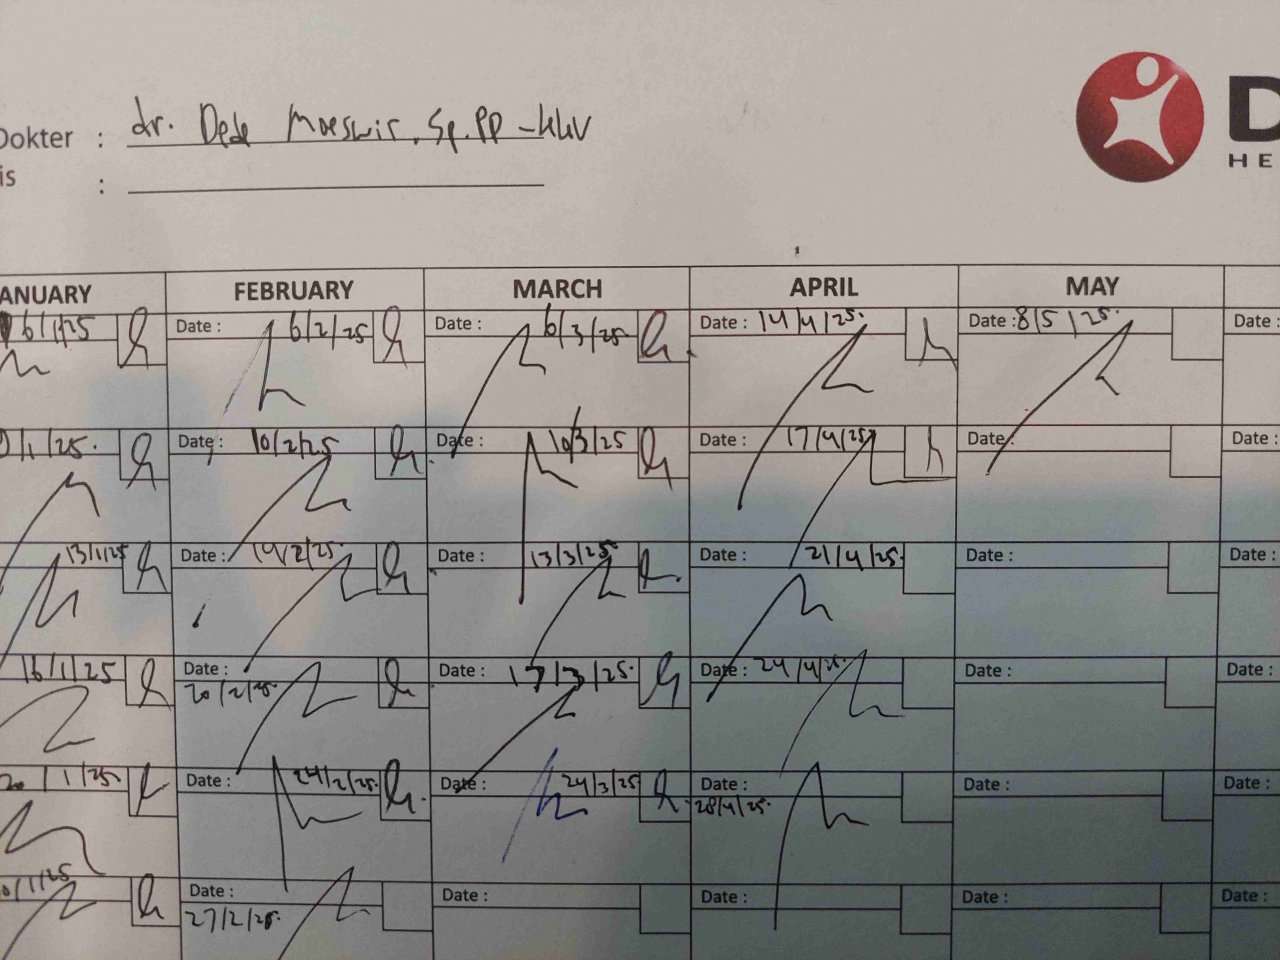 Dokter : dr. Dede Moeswir, Sp.PD-KKV
is :
D
HE
ANUARY FEBRUARY MARCH APRIL MAY
6/1/25 Date : 6/2/25 Date : 6/3/25 Date : 14/4/25. Date : 8/5/25. Date :
/1/25. Date : 10/2/25 Date : 10/3/25 Date : 17/4/25 Date : Date :
13/1/25 Date : 14/2/25. Date : 13/3/25 Date : 21/4/25. Date : Date :
16/1/25 Date : Date : 17/3/25. Date : 24/4/25. Date : Date :
20/2/25.
20/1/25 Date : 24/2/25. Date : 24/3/25 Date : Date : Date :
28/4/25.
0/1/25 Date : Date : Date : Date : Date :
27/2/25.